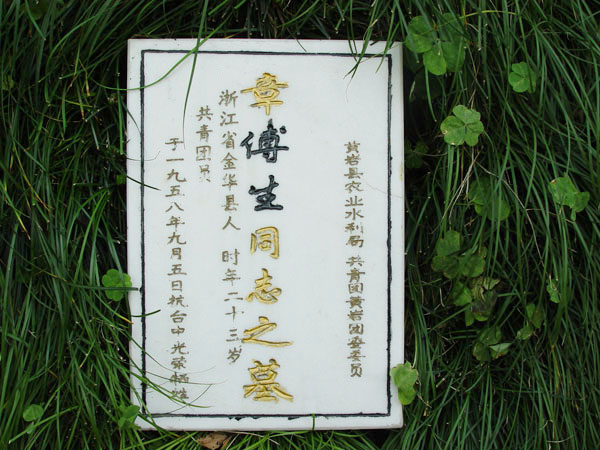 黄岩县农业水利局 共青团黄岩团委委员
章傅生同志之墓
浙江省金华县人 时年二十三岁
共青团员
于一九五八年九月五日抗台中光荣牺牲